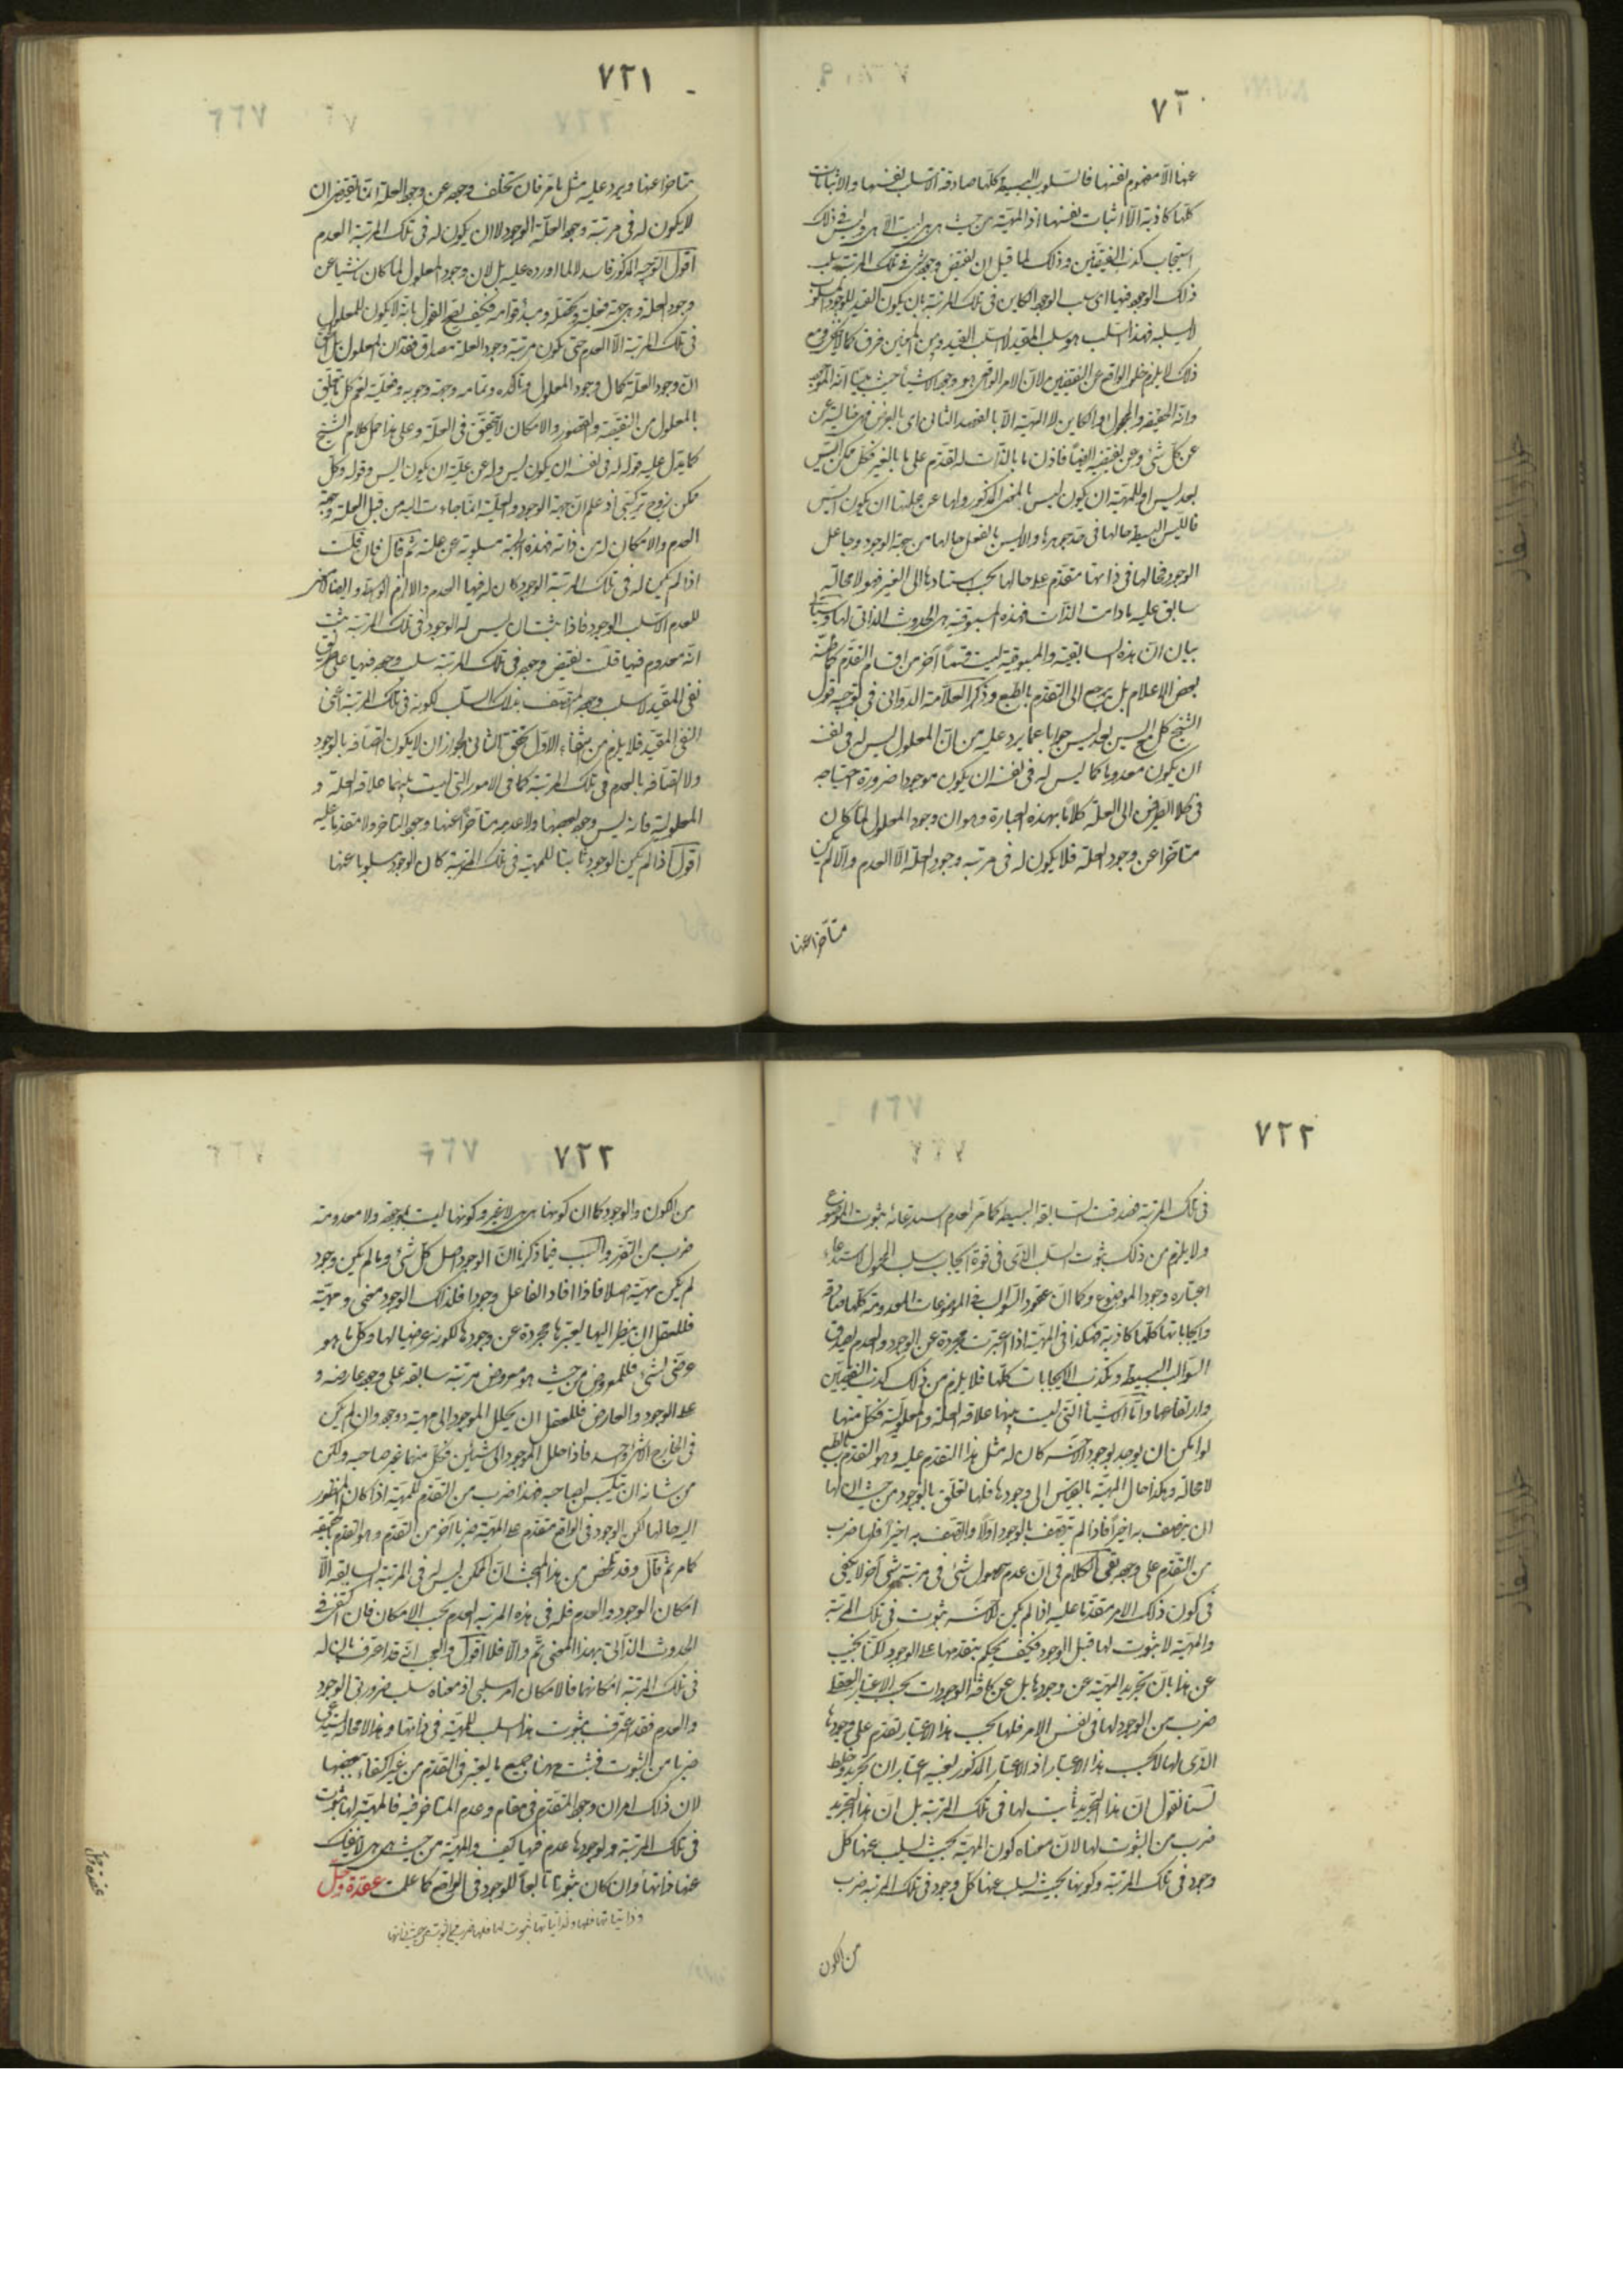 ٧٢٠
عنها الا مفهوم نفسها فالسلوب البسيطة كلها صادقة الا سلب نفسها والاثباتات
كلها كاذبة الا اثبات نفسها اذ المهية من حيث هى هى ليست الا هى وليس فى ذلك
استيجاب كذب النقيضين وذلك لما قيل ان نقيض وجود شىء فى تلك المرتبة سلب
ذلك الوجود فيها اى سلب الوجود الكاين فى تلك المرتبة بان يكون القيد للوجود المسلوب
لا لسلبه فهذا السلب هو سلب المقيد لا السلب المقيد وبين المعنيين فرق كما لا يخفى ومع
ذلك لا يلزم خلو الواقع عن النقيضين لان الامر الواقعى هو وجود الاشياء حيث بينا انه الموجود
وانه المجعول والكاين لا المهية الا بالقصد الثانى اى بالعرض فهى خالية عن
عن كل شىء وعن نقيضه ايضا فاذن ما بالذات له تقدم على ما بالغير فكل ممكن ايس
بعد ليس اذ للمهية ان يكون ليس بالمعنى المذكور ولها عن علتها ان يكون ايس
فالليس البسيط حالها فى حد جوهرها والايس بالفعل حالها من جهة الوجود وجاعل
الوجود فحالها فى ذاتها متقدم على حالها بحسب استنادها الى الغير فهو لا محالة
سابق عليه ما دامت الذات فهذه المسبوقية هى الحدوث الذاتى لها وسياتى
بيان ان هذه السابقية والمسبوقية ليست قسما آخر من اقسام التقدم كما ظنه
بعض الاعلام بل يرجع الى التقدم بالطبع وذكر العلامة الدوانى فى توجيه قول
الشيخ كل ايس بعد ليس جوابا عما يرد عليه من ان المعلول ليس له فى نفسه
ان يكون معدوما كما ليس له فى نفسه ان يكون موجودا ضرورة احتياجه
فى كلا الطرفين الى العلة كلاما بهذه العبارة وهو ان وجود المعلول لما كان
متاخرا عن وجود العلة فلا يكون له فى مرتبة وجود العلة الا العدم والا لم يكن
متاخرا عنها
٧٢١
متاخرا عنها ويرد عليه مثل ما مر فان تخلف وجوده عن وجود العلة انما يقتضى ان
لا يكون له فى مرتبة وجود العلة الوجود لا ان يكون له فى تلك المرتبة العدم
اقول التوجيه المذكور فاسد لا لما اورده عليه بل لان وجود المعلول لما كان ناشيا عن
وجود العلة وهى جهة فعليته وتحققه ومبدء قوامه فكيف يصح القول بانه لا يكون للمعلول
فى تلك المرتبة الا العدم حتى يكون مرتبة وجود العلة مصداق فقدان المعلول بل الحق
ان وجود العلة كمال وجود المعلول وتاكده وتمامه وجهة وجوبه وفعليته نعم كل ما يتعلق
بالمعلول من النقيصة والقصور والامكان لا يتحقق فى العلة وعلى هذا حمل كلام الشيخ
كما يدل عليه قوله له فى نفسه ان يكون ليس وله عن علته ان يكون ايس وقوله وكل
ممكن زوج تركيبى اذ علم ان جهة الوجود والفعلية انما جاءت اليه من قبل العلة وجهة
العدم والامكان له من ذاته فهذه الجهة مسلوبة عن علته ثم قال فان قلت
اذا لم يكن له فى تلك المرتبة الوجود كان له فيها العدم والا لزم الواسطة وايضا لا معنى
للعدم الا سلب الوجود فاذا ثبت ان ليس له الوجود فى تلك المرتبة ثبت
انه معدوم فيها قلت نقيض وجوده فى تلك المرتبة سلب وجوده فيها على طريق
نفى المقيد لا سلب وجوده المتصف بذلك السلب كونه فى تلك المرتبة اعنى
النفى المقيد فلا يلزم من انتفاء الاول تحقق الثانى لجواز ان لا يكون اتصافه بالوجود
ولا اتصافه بالعدم فى تلك المرتبة كما فى الامور التى ليست بينهما علاقة العلة و
المعلولية فانه ليس وجود بعضها ولا عدمه متاخرا عنها وجود المتاخر ولا متقدما عليه
اقول اذا لم يكن الوجود ثابتا للمهية فى تلك المرتبة كان الوجود مسلوبا عنها
٧٢٢
فى تلك المرتبة فصدقت السالبة البسيطة كما مر لعدم استدعائه ثبوت الموضوع
ولا يلزم من ذلك ثبوت السلب الذى فى قوة ايجاب سلب المحمول لاستدعاء
اعتباره وجود الموضوع وكما ان عقود السوالب فى الموضوعات المعدومة كلها صادقة
وايجاباتها كلها كاذبة فهكذا فى المهية اذا اعتبرت مجردة عن الوجود والعدم يصدق
السوالب البسيطة ويكذب الايجابات كلها فلا يلزم من ذلك كذب النقيضين
وارتفاعهما واما الاشياء التى ليست بينها علاقة العلة والمعلولية فكل منها
لو امكن ان يوجد بوجود الآخر كان له مثل هذا التقدم عليه وهو التقدم بالطبع
لا محالة وهكذا حال المهية بالقياس الى وجودها فلها تعلق بالوجود من حيث ان لها
ان يتصف به اخيرا فاذا لم يتصف بالوجود اولا واتصف به اخيرا فلها ضرب
من التقدم على وجوده بقى الكلام فى ان عدم حصول شىء فى مرتبة شىء آخر لا يكفى
فى كون ذلك الامر متقدما عليه اذا لم يكن للآخر ثبوت فى تلك المرتبة
والمهية لا ثبوت لها قبل الوجود فكيف يحكم بتقدمها على الوجود لكنا نجيب
عن هذا بان تجريد المهية عن وجودها بل عن كافة الوجودات بحسب الاعتبار العقلى
ضرب من الوجود لها فى نفس الامر فلها بحسب هذا الاعتبار تقدم على وجودها
الذى لها لا بحسب هذا الاعتبار اذ الاعتبار المذكور بعينه اعتباران تجريد وخلط
لسنا نقول ان هذا التجريد ثابت لها فى تلك المرتبة بل ان هذا التجريد
ضرب من الثبوت لها لان معناه كون المهية بحيث يسلب عنها كل
وجود فى تلك المرتبة وكونها بحيث يسلب عنها كل وجود فى تلك المرتبة ضرب
من الكون
٧٢٣
من الكون والوجود كما ان كونها هى هى لا غير وكونها ليست بموجودة ولا معدومة
ضرب من التقرر والسبب فيما ذكرنا ان الوجود اصل كل شىء وما لم يكن وجود
لم يكن مهية اصلا فاذا افاد الفاعل وجودا فلذلك الوجود معنى ومهية
فللعقل ان ينظر اليها ويعتبرها مجردة عن وجودها لكونه عرضيا لها وكل ما هو
عرضى لشىء فللمعروض من حيث هو معروض مرتبة سابقة على وجود عارضه و
على الوجود والعارض فللعقل ان يحلل الموجود الى مهية ووجود وان لم يكن
فى الخارج الا شىء واحد فاذا حلل الموجود الى شيئين فكل منهما غير صاحبه ولكن
من شانه ان يتلبس لصاحبه فهذا ضرب من التقدم للمهية اذا كان المنظور
اليه حالها لكن الوجود فى الواقع متقدم على المهية ضربا آخر من التقدم وهو التقدم بالحقيقة
كما مر ثم قال وقد تلخص من هذا المبحث ان الممكن ليس له فى المرتبة السابقة الا
امكان الوجود والعدم فله فى هذه المرتبة العدم بحسب الامكان فان اكتفى فى
الحدوث الذاتى بهذا المعنى تم والا فلا اقول والعجب انه قد اعترف بان له
فى تلك المرتبة امكانها فالامكان امر سلبى اذ معناه سلب ضرورتى الوجود
والعدم فقد اعترف بثبوت هذا السلب للمهية فى ذاتها وهذا لا محالة يستدعى
ضربا من الثبوت فثبت ههنا جميع ما يعتبر فى التقدم من غير اكتفاء ببعضها
لان ذلك امران وجود المتقدم فى مقام وعدم المتاخر فيه فالمهية لها ثبوت
فى تلك المرتبة ولوجودها عدم فيها كيف والمهية من حيث هى هى لا ينفك
عنها ذاتها وان كان ثبوتا تابعا للوجود فى الواقع كما علمت عقدة وحل
وذاتياتها فلها ولذاتياتها ثبوت